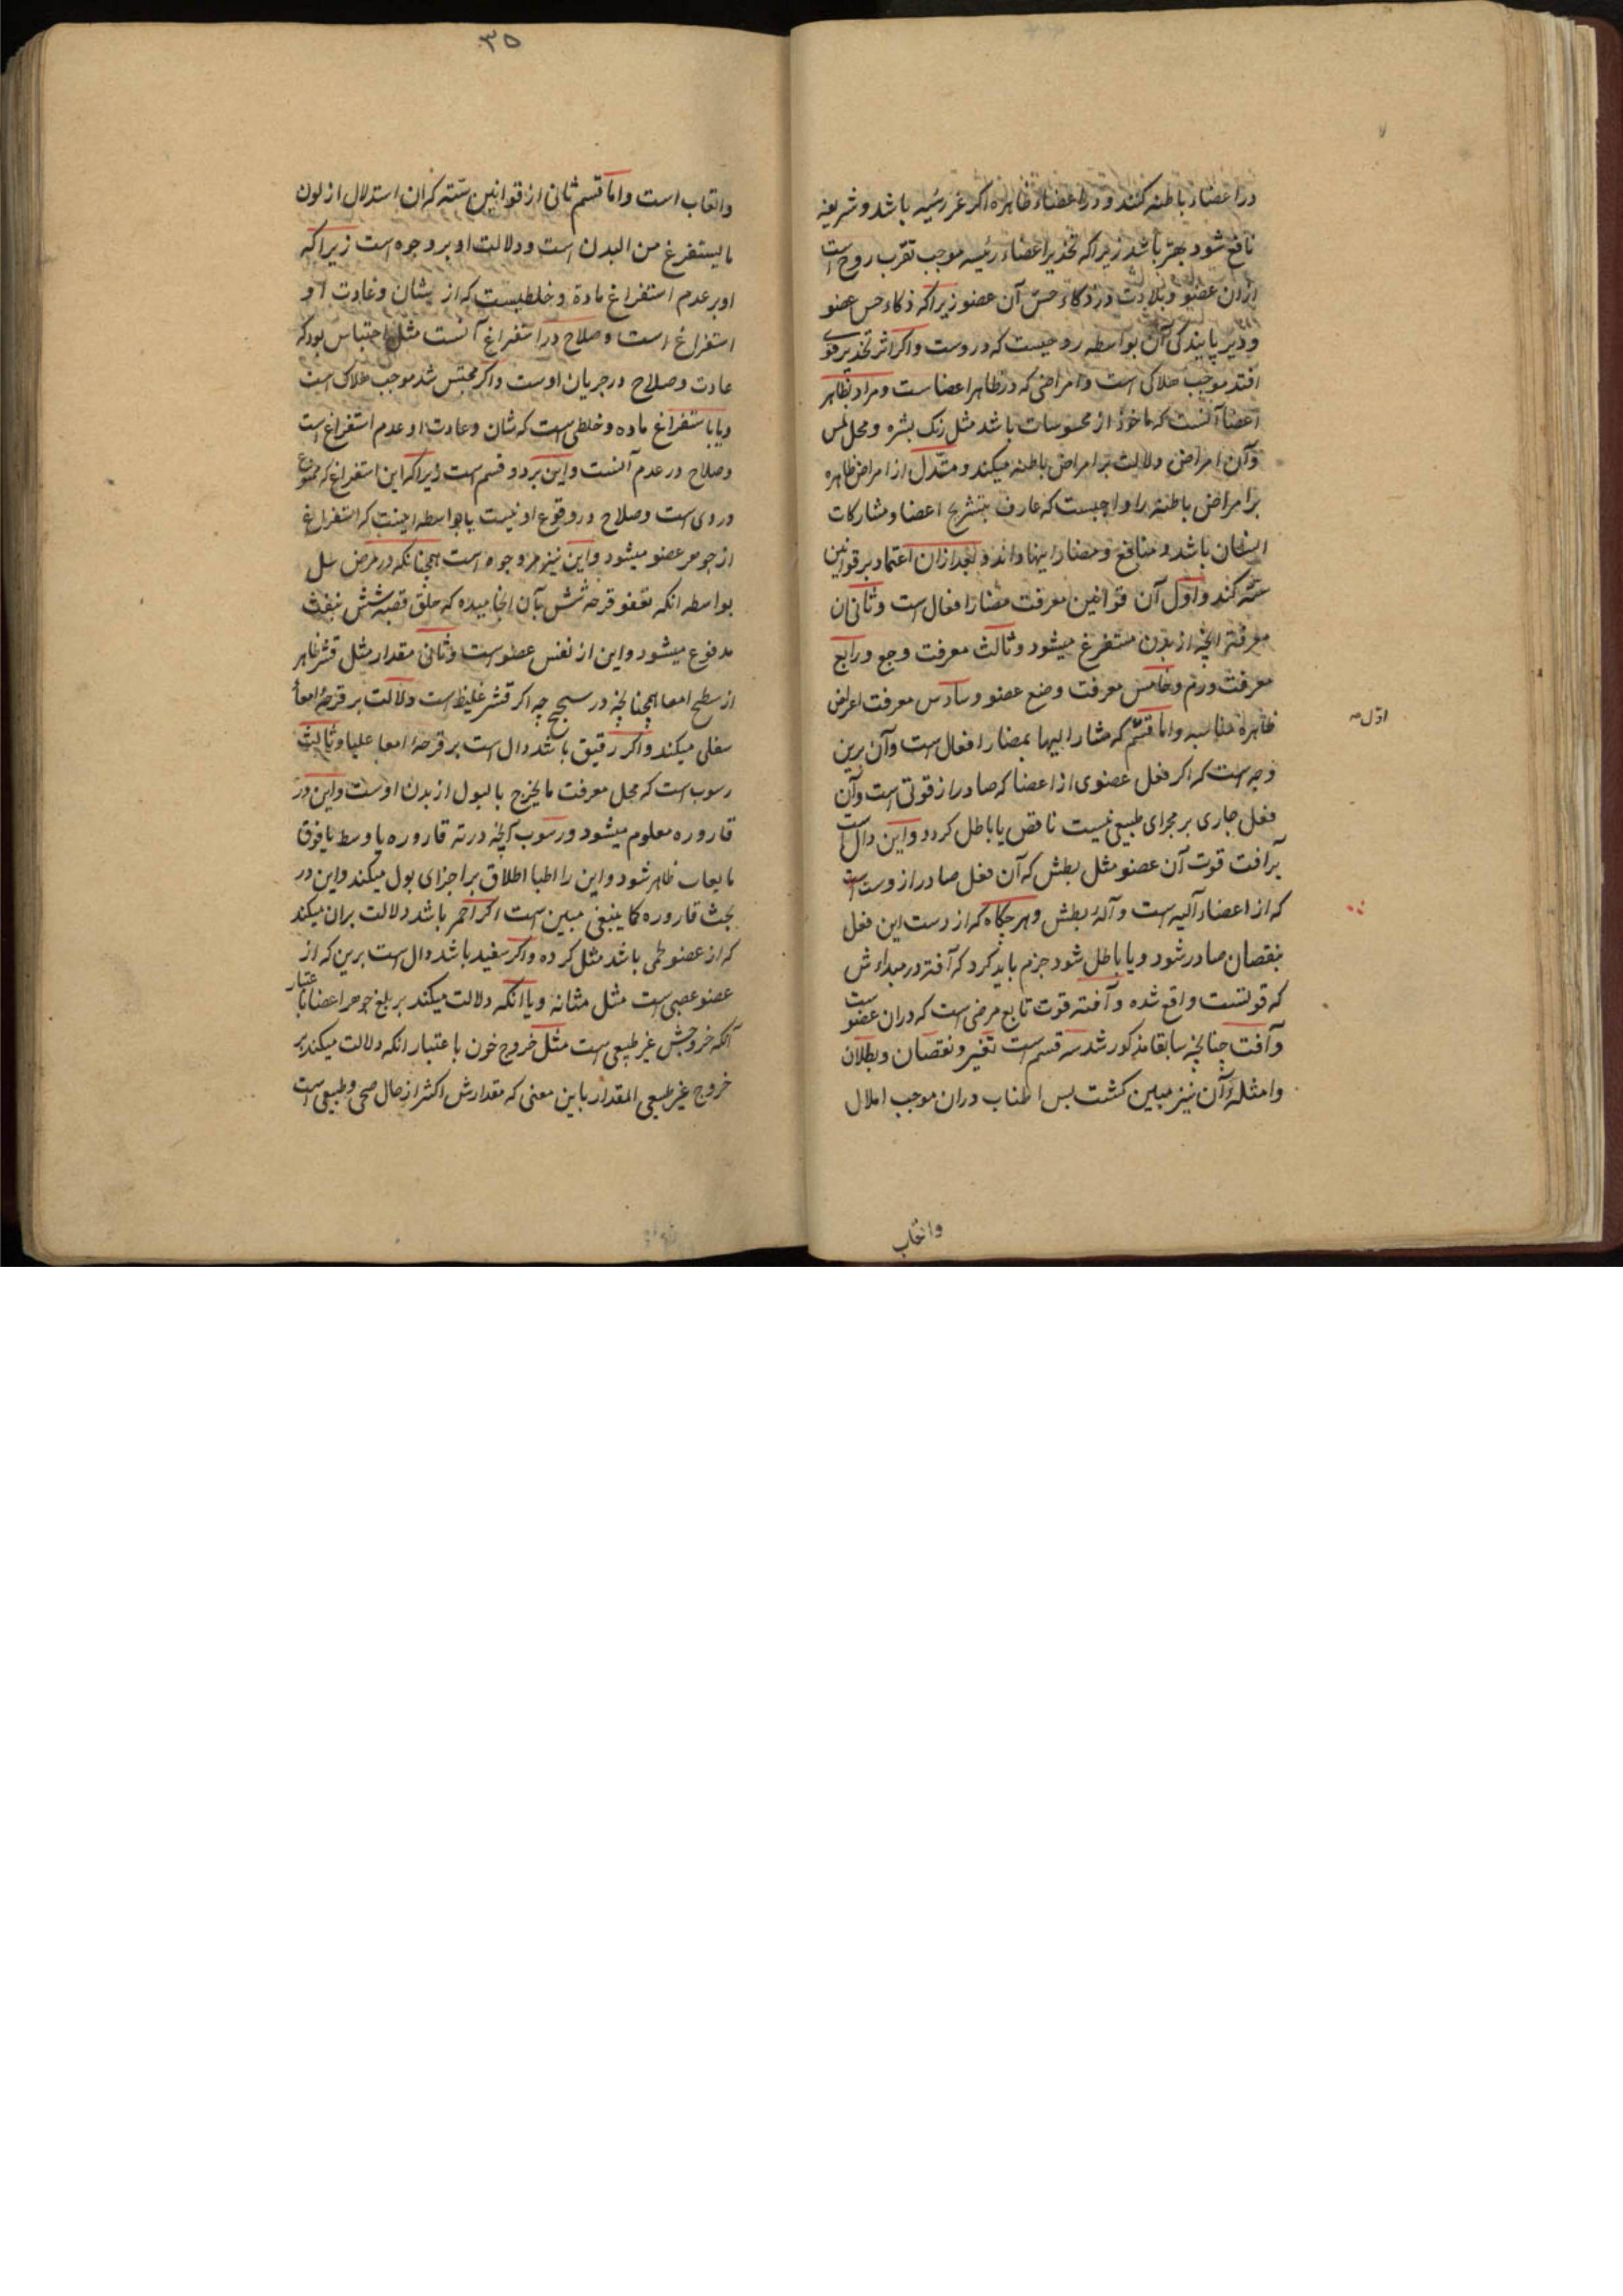 در اعضاء باطنه کنند و در اعضاء ظاهره اکر غیر رئیسه باشد و شریفه
نافع شود بهتر باشد زیرا که تخدیر اعضاء رئیسه موجب تقرب روح است
ازان عضو و بلادت در ذکاء حس آن عضو زیرا که ذکاء حس عضو
و دیر پایندکی آن بواسطه روحیست که دروست و اکر اثر تخدیر قوی
افتد موجب هلاکی است و امراضی که در ظاهر اعضا ست و مراد بظاهر
اعضا آنست که ماخوذ از محسوسات باشد مثل رنک بشره و محل لمس
و آن امراض دلالت بر امراض باطنه میکند و مستدل از امراض ظاهره
بر امراض باطنه را واجبست که عارف بتشریح اعضا و مشارکات
ایشان باشد و منافع و مضار اینها داند و بعد ازان اعتماد بر قوانین
سته کند و اول آن قوانین معرفت مضار افعال است و ثانی ان
معرفت انچه از بدن مستفرغ میشود و ثالث معرفت وجع و رابع
معرفت ورم و خامس معرفت وضع عضو و سادس معرفت اعراض
ظاهره مناسبه و اما قسم که مشار الیها بمضار افعال است و آن برین
اول صح
وجه است که اکر فعل عضوی از اعضا که صادر از قوتی است و آن
فعل جاری بر مجرای طبیعی نیست ناقص یا باطل کردد و این دال است
بر افت قوت آن عضو مثل بطش که آن فعل صادر از دست است
که از اعضاء آلیه است و آلهٔ بطش و هر جکاه که از دست این فعل
بنقصان صادر شود و یا باطل شود جزم باید کرد که آفته در مبداءش
که قوتست واقع شده و آفته قوت تابع مرضی است که دران عضو است
و آفت چنانچه سابقا مذکور شد سه قسم است تغیر و نقصان و بطلان
و امثلهٔ آن نیز مبین کشت بس اطناب دران موجب املال
واتعاب
۳۵
واتعاب است و اما قسم ثانی از قوانین سته که ان استدلال از لون
ما یستفرغ من البدن است و دلالت او بر وجوه است زیرا که
او بر عدم استفراغ مادهٔ و خلطیست که از شان و عادت او
استفراغ است و صلاح در استفراغ آنست مثل احتباس بود که
عادت و صلاح در جریان اوست و اکر محتبس شد موجب هلاک است
و یا باستفراغ ماده و خلطی است که شان و عادت او عدم استفراغ است
و صلاح در عدم آنست و این بر دو قسم است زیرا که این استفراغ که ممنوع
و ردی است و صلاح در وقوع او نیست یا بواسطه اینست که استفراغ
از جوهر عضو میشود و این نیز بر وجوه است همچنانکه در مرض سل
بواسطه انکه تعفو قرحه شش بآن انجامیده که حلق قصبه شش بنفث
مدفوع میشود و این از نفس عضو است و ثانی مقدار مثل قشر ظاهر
از سطح امعا همچنانچه در سحج چه اکر قشر غلیظ است دلالت بر قرحهٔ امعاء
سفلی میکند و اکر رقیق باشد دال است بر قرحهٔ امعا علیا و ثالث
رسوب است که محل معرفت ما یخرج بالبول از بدن اوست و این در
قاروره معلوم میشود و رسوب آنچه در ته قاروره یا وسط یا فوق
ظاهر شود و این را اطبا اطلاق بر اجزای بول میکند و این در
بحث قاروره کما ینبغی مبین است اکر احمر باشد دلالت بران میکند
که از عضو لحمی باشد مثل کرده و اکر سفید باشد دال است برین که از
عضو عصبی است مثل مثانه و یا انکه دلالت میکند بر جوهر اعضا باعتبار
آنکه خروجش غیر طبیعی است مثل خروج خون باعتبار انکه دلالت میکند بر
خروج غیر طبیعی المقدار باین معنی که مقدارش اکثر از حال صحی و طبیعی است